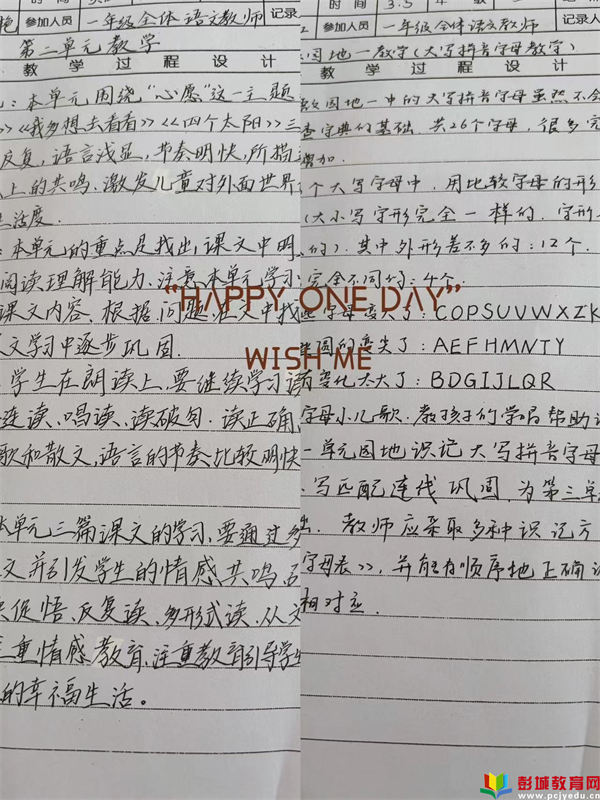 时间
参加人员 一年级全体语文教师
记录
第二单元教学
教学过程设计
：本单元围绕“心愿”这一主题
>><<我多想去看看>><<四个太阳>>三
反复,语言浅显,节奏明快,所描
上的共鸣.激发儿童对外面世界
生活度.
：本单元的重点是找出课文中明
阅读理解能力.注意本单元学习
课文内容.根据问题在文中找
文学习中逐步巩固.
.学生在朗读上,要继续学习读
连读、唱读、读破句.读正确
歌和散文,语言的节奏比较明快
本单元三篇课文的学习,要通过多
文并引发学生的情感共鸣
促悟、反复读、多形式读.从文
重情感教育.注重教育引导学生
的幸福生活。
时间 3.5 年
参加人员 一年级全体语文教师
记录人
园地一教学(大写拼音字母教学)
教学过程设计
园地一中的大写拼音字母虽然不会
查字典的基础.共26个字母,很多完
增加.
个大写字母中.用比较字母的形
(大小写字形完全一样的.字形
的).其中外形差不多的:12个.
完全不同的:4个
字母变大了:COPSUVWXZK
圆的变尖了:AEFHMNTY
变化太大了:BDGIJLQR
字母小儿歌.教孩子们学唱帮助记
一单元园地识记大写拼音字母
写匹配连线巩固,为第三单
.教师应采取多种识记方
字母表>>,并能有顺序地正确
相对应.
“HAPPY ONE DAY”
WISH ME
彭城教育网
www.pcjyedu.cn